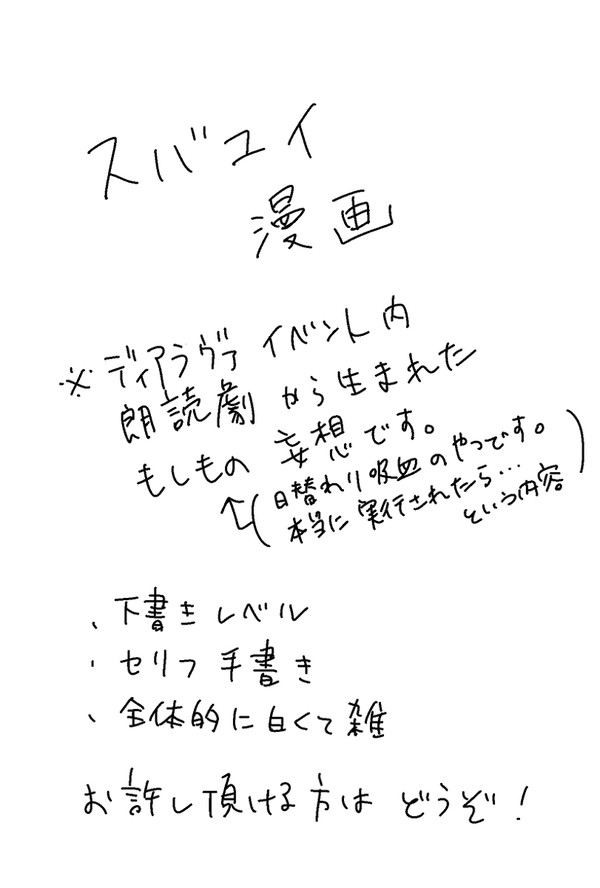 スバユイ
漫画
※ディアラヴァ イベント内
朗読劇から生まれた
もしもの妄想です。
↑(日替わり吸血のやつです。
本当に実行されたら…
という内容)
、下書きレベル
・セリフ手書き
、全体的に白くて雑
お許し頂ける方は どうぞ!